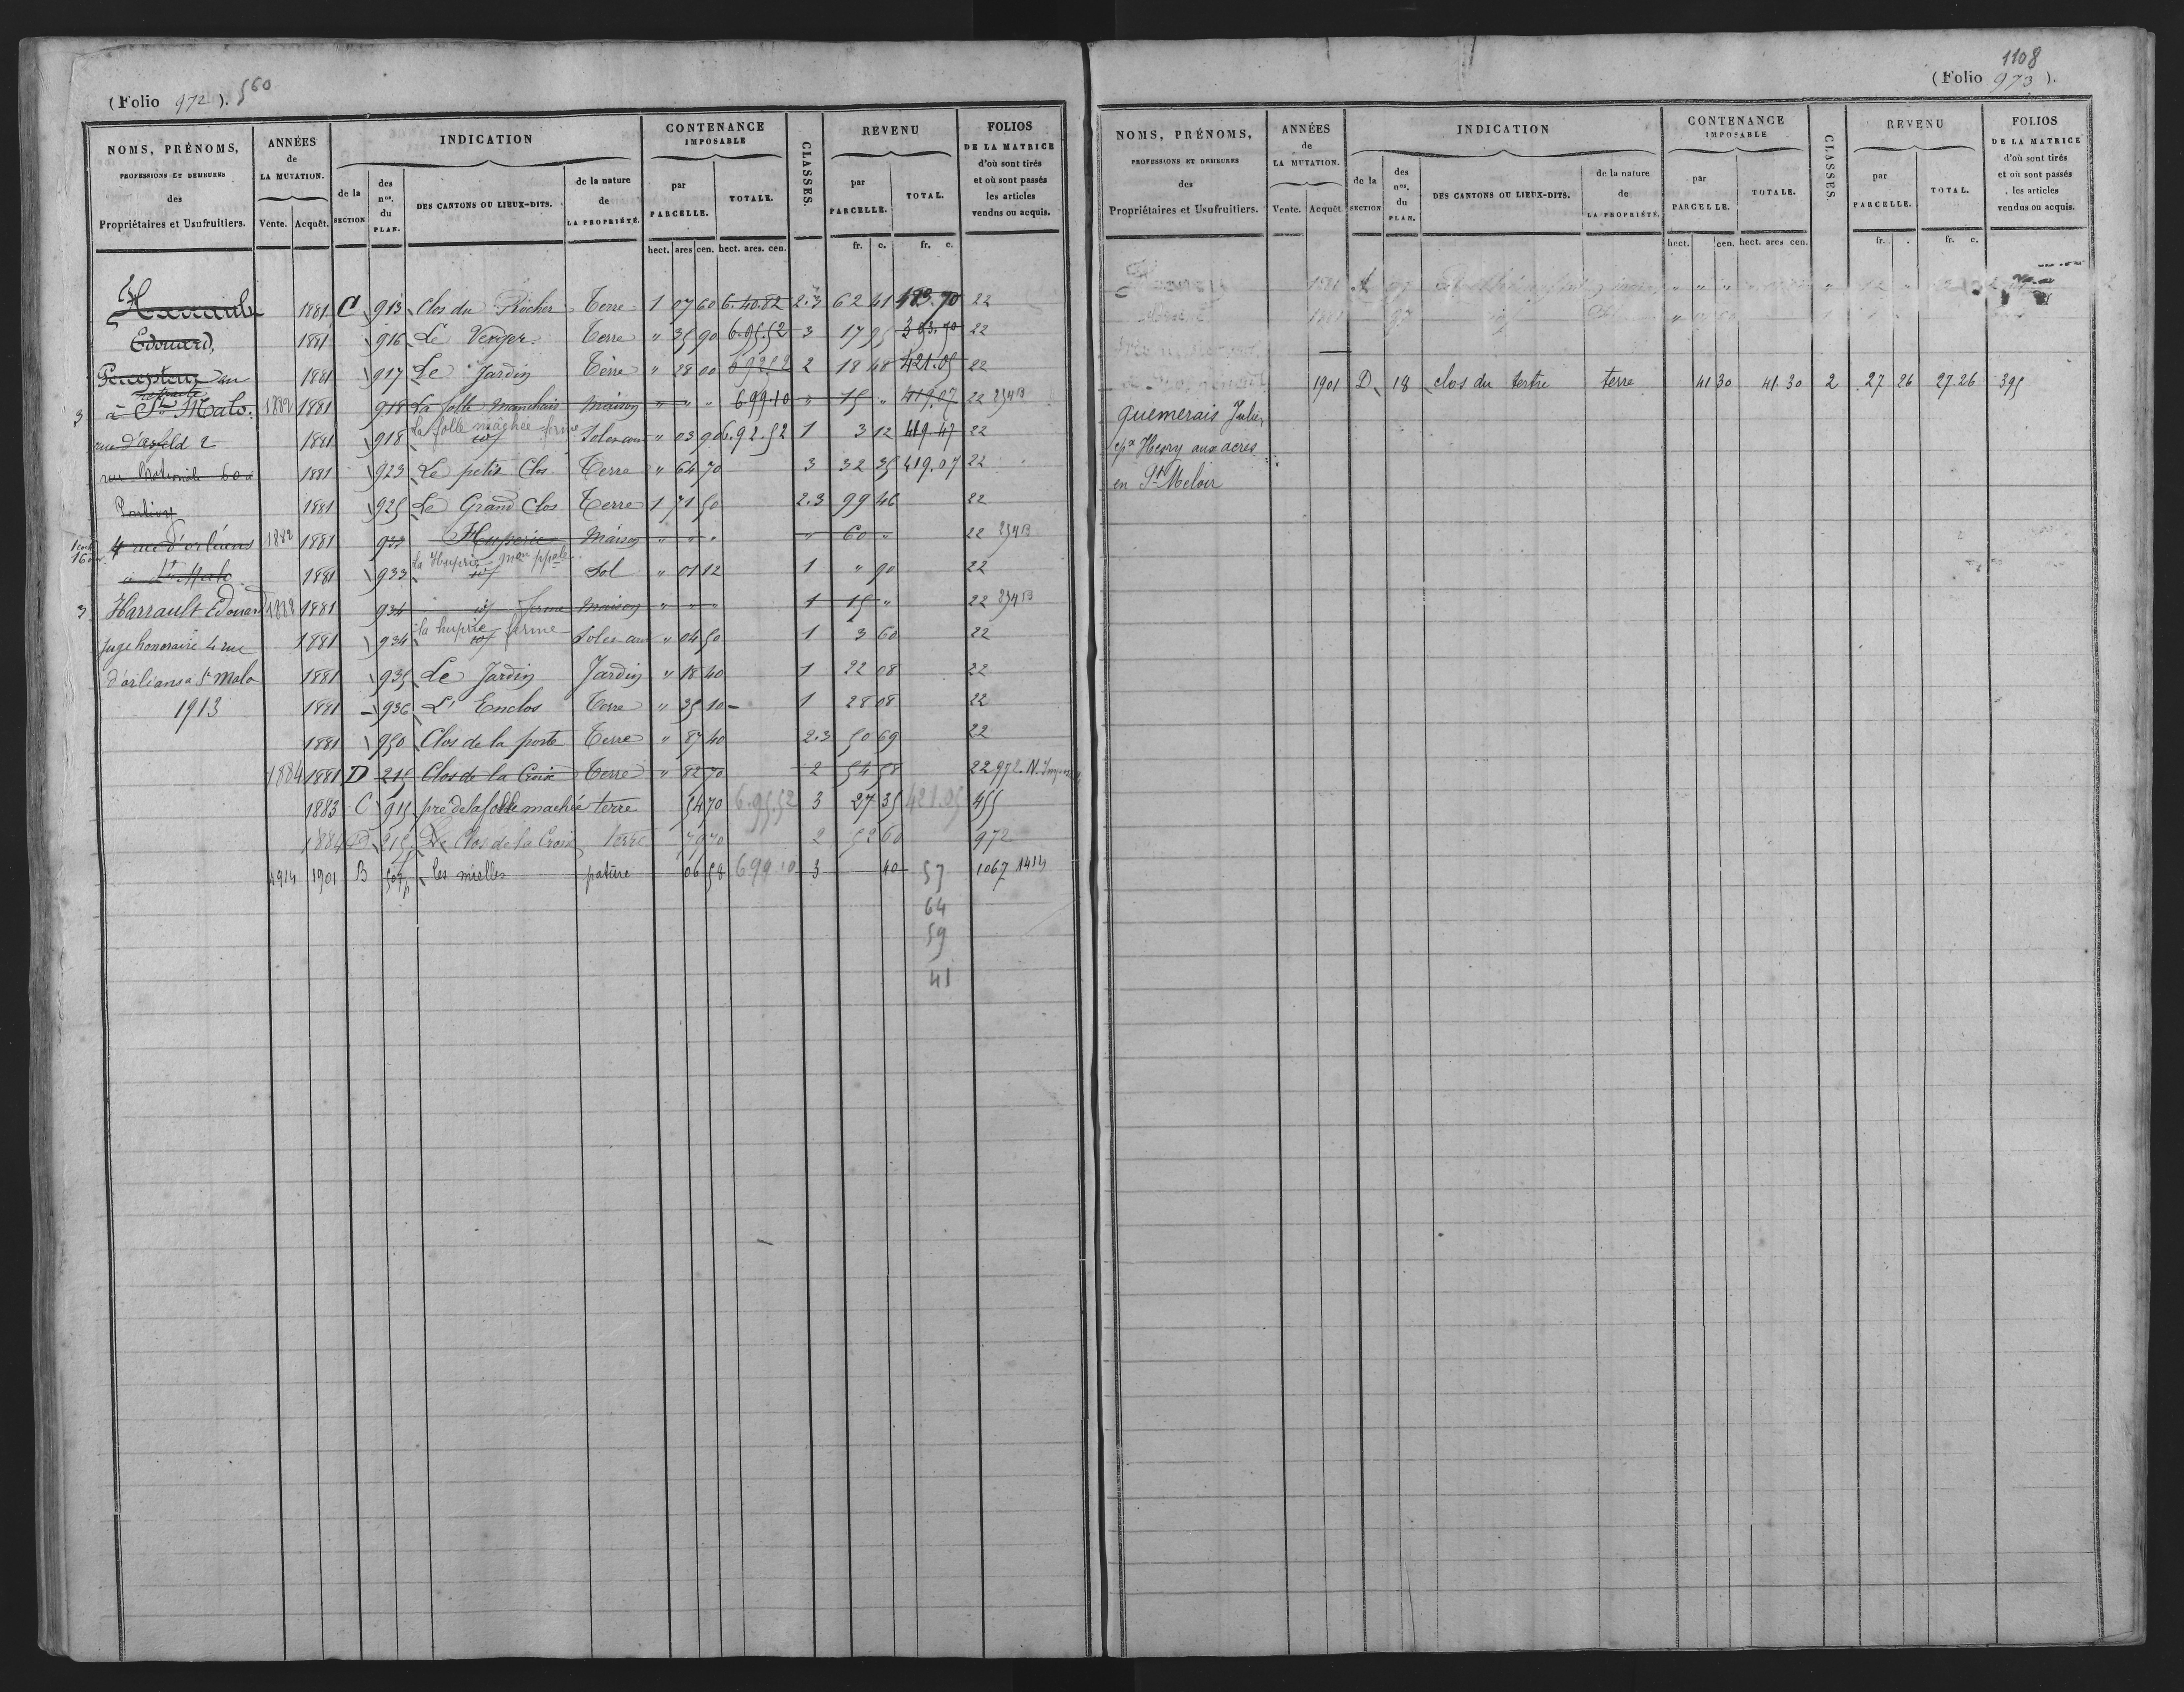 (Folio 972). 560
NOMS, PRÉNOMS, PROFESSIONS ET DEMEURES des Propriétaires et Usufruitiers.
ANNÉES de LA MUTATION. Vente. Acquêt.
INDICATION
de la SECTION
des nos. du PLAN.
DES CANTONS OU LIEUX-DITS.
de la nature de LA PROPRIÉTÉ.
CONTENANCE IMPOSABLE
par PARCELLE. TOTALE.
hect. ares cen. hect. ares. cen.
CLASSES.
REVENU
par PARCELLE. TOTAL.
fr. c. fr. c.
FOLIOS DE LA MATRICE d'où sont tirés et où sont passés les articles vendus ou acquis.
1881 C 913 Clos du Rocher Terre 1 07 60 6.40.82 2.3 62 41 22
Edouard, 1881 916 Le Verger Terre " 35 90 6.95.52 3 17 95 393.70 22
1881 917 Le Jardin Terre " 28 00 2 18 48 421.05 22
à St Malo. 1882 1881 918 La folle Manchais Maison " " " 6.99.10 " 15 " 22 254B
rue d'asfeld 2 1881 918 la folle machée ferme id Sol et cour " 03 90 6.92.52 1 3 12 419.47 22
rue Nationale 1881 923 Le petit Clos Terre " 64 70 3 32 35 419.07 22
1881 925 Le Grand Clos Terre 1 71 50 2.3 99 46 22
4 rue d'orléans 1882 1881 933 Huperie Maison " " " " 60 " 22 254B
à St Malo 1881 933 la Huprie mon ppale id Sol " 01 12 1 " 90 22
3 Harrault Edouard 1882 1881 934 id ferme Maison " " " 1 15 " 22 254B
juge honoraire 4 rue 1881 934 la huprie ferme id Sol et cour " 04 50 1 3 60 22
d'orlians a St Malo 1881 935 Le Jardin Jardin " 18 40 1 22 08 22
1913 1881 936 L' Enclos Terre " 35 10 1 28 08 22
1881 950 Clos de la porte Terre " 87 40 2.3 50 69 22
1884 1881 D 215 Clos de la Croix Terre " 82 70 2 54 58 22 972.
1883 C 915 pré de la folle machée terre 54 70 6.95.52 3 27 35 421.05 455
1884 D 215 Le Clos de la Croix terre 79 70 2 52 60 972
1914 1901 B 507p Les mielles pature 06 58 699.10 3 40 1067 1414
57
64
59
41
1108
(Folio 973).
NOMS, PRÉNOMS, PROFESSIONS ET DEMEURES des Propriétaires et Usufruitiers.
ANNÉES de LA MUTATION. Vente. Acquêt.
INDICATION
de la SECTION
des nos. du PLAN.
DES CANTONS OU LIEUX-DITS.
de la nature de LA PROPRIÉTÉ.
CONTENANCE IMPOSABLE
par PARCELLE. TOTALE.
hect. cen. hect. ares cen.
CLASSES.
REVENU
par PARCELLE. TOTAL.
fr. . fr. c.
FOLIOS DE LA MATRICE d'où sont tirés et où sont passés les articles vendus ou acquis.
1901 D 18 clos du tertre terre 41 30 41.30 2 27 26 27.26 395
quemerais Julie,
epx Hevry aux acres
en St Meloir